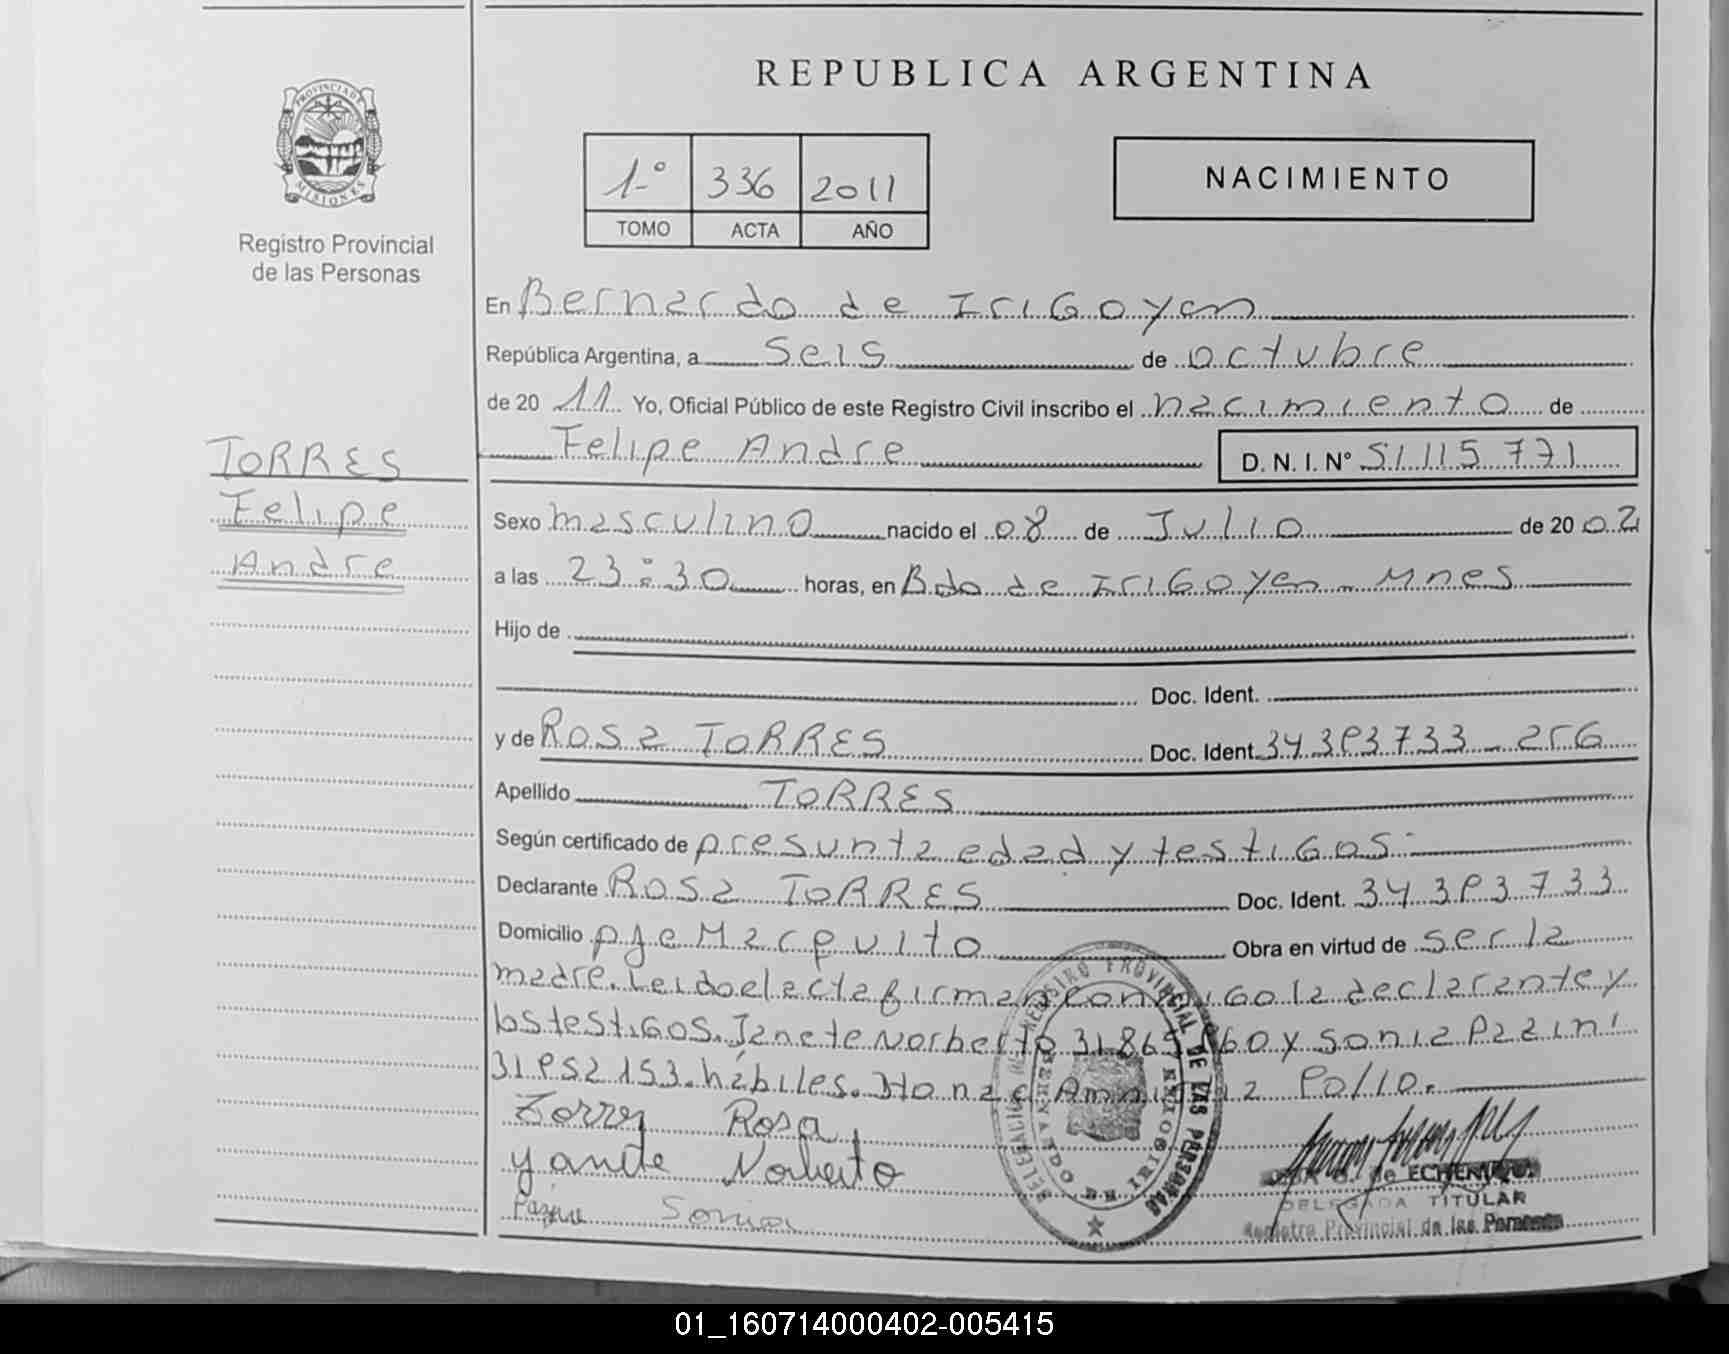 PROVINCIA DE
MISIONES
Registro Provincial
de las Personas
TORRES
Felipe
Andre
REPUBLICA ARGENTINA
1º 336 2011
TOMO ACTA AÑO
NACIMIENTO
En Bernardo de Irigoyen
República Argentina, a Seis de octubre
de 20 11 Yo, Oficial Público de este Registro Civil inscribo el nacimiento de
Felipe Andre D. N. I. Nº 51.115.771
Sexo masculino nacido el 08 de Julio de 20 02
a las 23:30 horas, en Bdo de Irigoyen Mnes
Hijo de
Doc. Ident.
y de Rosa TORRES Doc. Ident. 
Apellido TORRES
Según certificado de presunta edad y testigos.-
Declarante Rosa TORRES Doc. Ident. 
Domicilio pje Macquito Obra en virtud de ser la
madre. Leido el acta firman conmigo la declarante y
los testigos. Janete Norberto y Sonia Pazini
hábiles.
Torres Rosa
Yanete Norberto
Sonia
REGISTRO PROVINCIAL DE LAS PERSONAS
de ECHENIQUE
DELEGADA TITULAR
Registro Provincial de las Personas
01_160714000402-005415